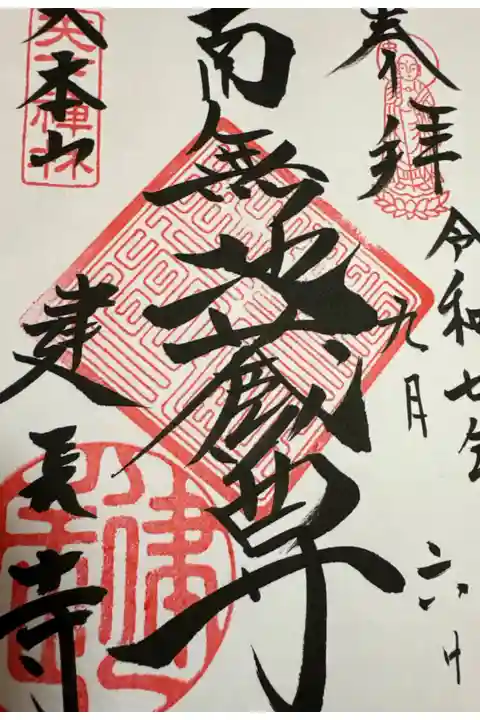 奉拝
令和七年
九月六日
南無地蔵尊
大本山
建長寺